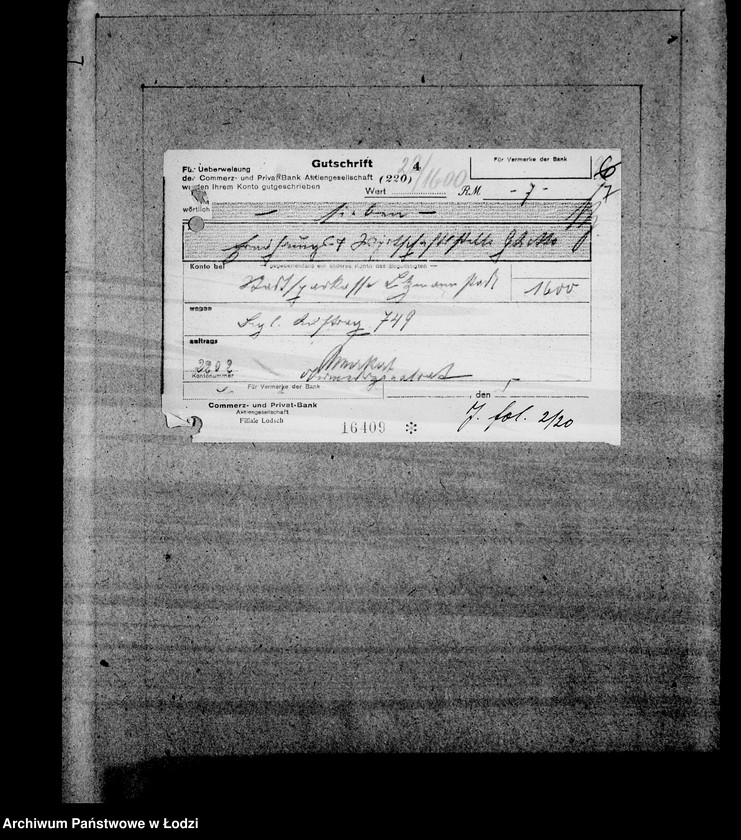 Gutschrift 4
Für Vermerke der Bank
Für Ueberweisung
der Commerz- und Privat-Bank Aktiengesellschaft (220)
wurden Ihrem Konto gutgeschrieben
1600
Wert RM. - 7 -
wörtlich
— sieben —
Ernährungs- & Wirtschaftsstelle Getto
Konto bei
Stadtsparkasse Litzmannstadt
1600
wegen
Auftrag 749
auftrags
2202
Kontonummer
Für Vermerke der Bank
, den
Commerz- und Privat-Bank
Aktiengesellschaft
Filiale Lodsch
16409
J. fol. 2/20
Archiwum Państwowe w Łodzi